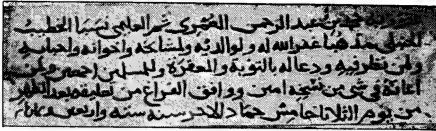 محمد بن عبد الرحمن العمري ثم العليمي نسبا الخطيب
الحنبلي مذهبا غفر الله له ولوالديه ولمشايخه واخوانه واحبابه
ولمن نظر فيه ودعا له بالتوبة والمغفرة وللمسلمين اجمعين ولمن
اعانه في شي من نسخه امين ووافق الفراغ من تعليقه بعد الظهر
من يوم الثلاثا خامس جماد الاخر سنة ستة واربعين